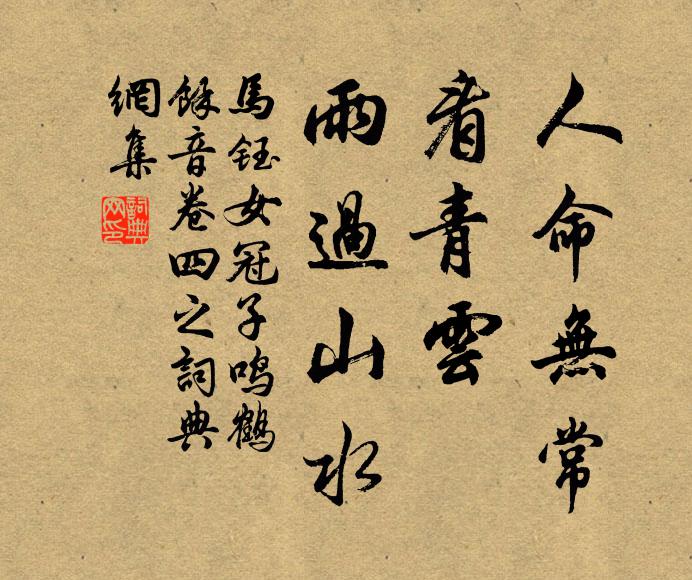 人命無常
看青雲
雨過山水
馬鈺女冠子鳴鶴
餘音卷四之詞典
網集
詞典網印